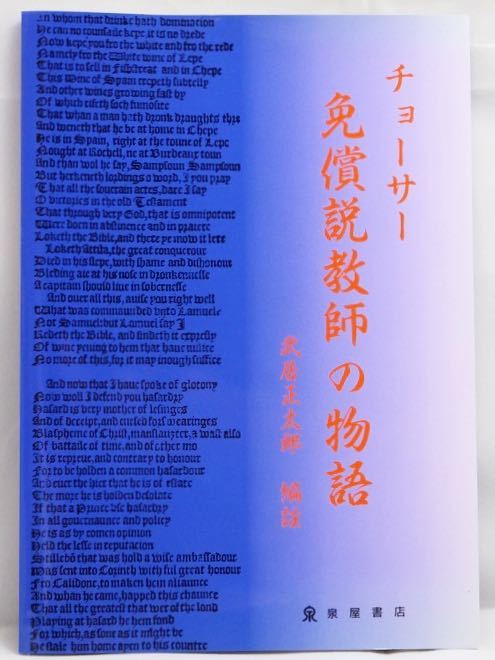 In whom that drinke hath domination
He can no counsaile kepe, it is na drede
Now kepe you fro the white and fro the rede
Namely fro the White wine of Lepe
That is to sell in Fishstreat and in Chepe
This Wine of Spain creepeth subtelly
And other wines growing fast by
Of which riseth soch fumosite
That whan a man hath dronk draughts thre
And weneth that he be at home in Chepe
He is in Spain, right at the toune of Lepe
Nought at Rochell, ne at Burdeaux toun
And than wol he say, Sampsoun Sampsoun
But herkeneth lordings o word, I you pray
That all the souerain actes, dare I say
O victories in the old Testament
That through very God, that is omnipotent
Were doen in abstinence and in praiere
Loketh the Bible, and there ye mow it lere
Loketh Attila, the great conquerour
Died in his slepe, with shame and dishonour
Bleding aie at his nose in dronkennesse
A capitain should liue in sobernesse
And ouer all this, auise you right well
What was commaunded vnto Lamuele
Not Samuel: but Lamuel say I
Redeth the Bible, and findeth it expresly
Of wine yeuing to hem that haue
No more of this, for it may inough suffice
And now that I haue spoke of glotony
Now woll I defend you hasardry
Hasard is very mother of lesinges
And of deceipt, and cursed forswearinges
Blaspheme of Christ, manslaughter, & wast also
Of battaile of time, and of other mo
It is repreue, and contrary to honour
For to be holden a common hasardour
And euer the hier that he is of estate
The more he is holden desolate
If that a Prince vse hasardry
In all gouernaunce and policy
He is as by comen opinion
Held the lesse in reputacion
Stillebon that was hold a wise ambassadour
Was sent into Corinth with ful great honour
Fro Calidone, to maken hem aliaunce
And whan he came, happed this chaunce
That all the greatest that wer of the lond
Playing at hasard he hem fond
For which, as sone as it might be
He stale him home ayen to his countre
チョーサー
免償説教師の物語
武居正太郎 編註
泉屋書店